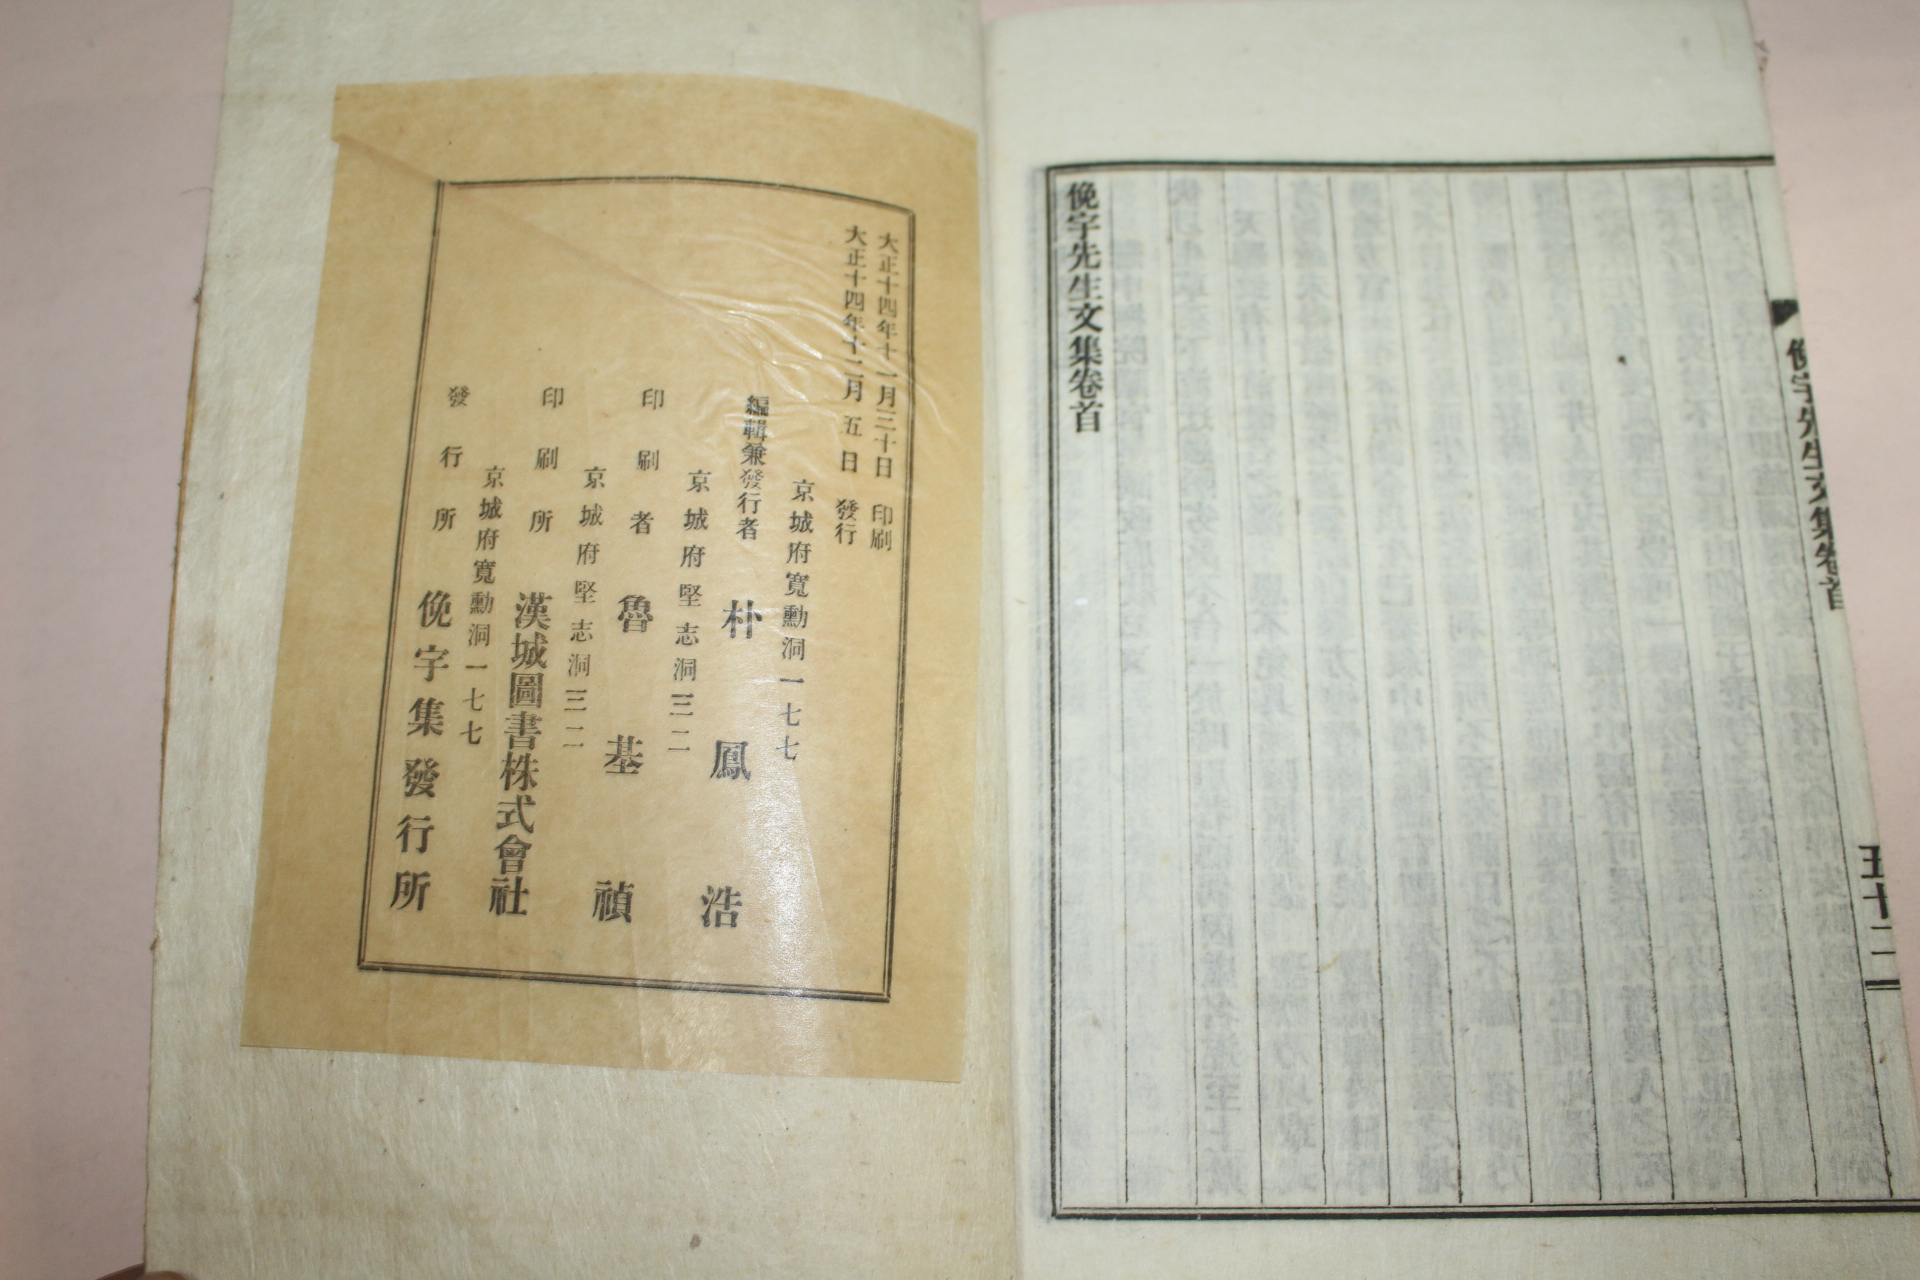 俛宇先生文集卷首
五十二
俛宇先生文集卷首
大正十四年十一月三十日 印刷
大正十四年十二月五日 發行
京城府寬勳洞一七七
編輯兼發行者 朴鳳浩
京城府堅志洞三二
印刷者 魯基禎
京城府堅志洞三二
印刷所 漢城圖書株式會社
京城府寬勳洞一七七
發行所 俛宇集發行所